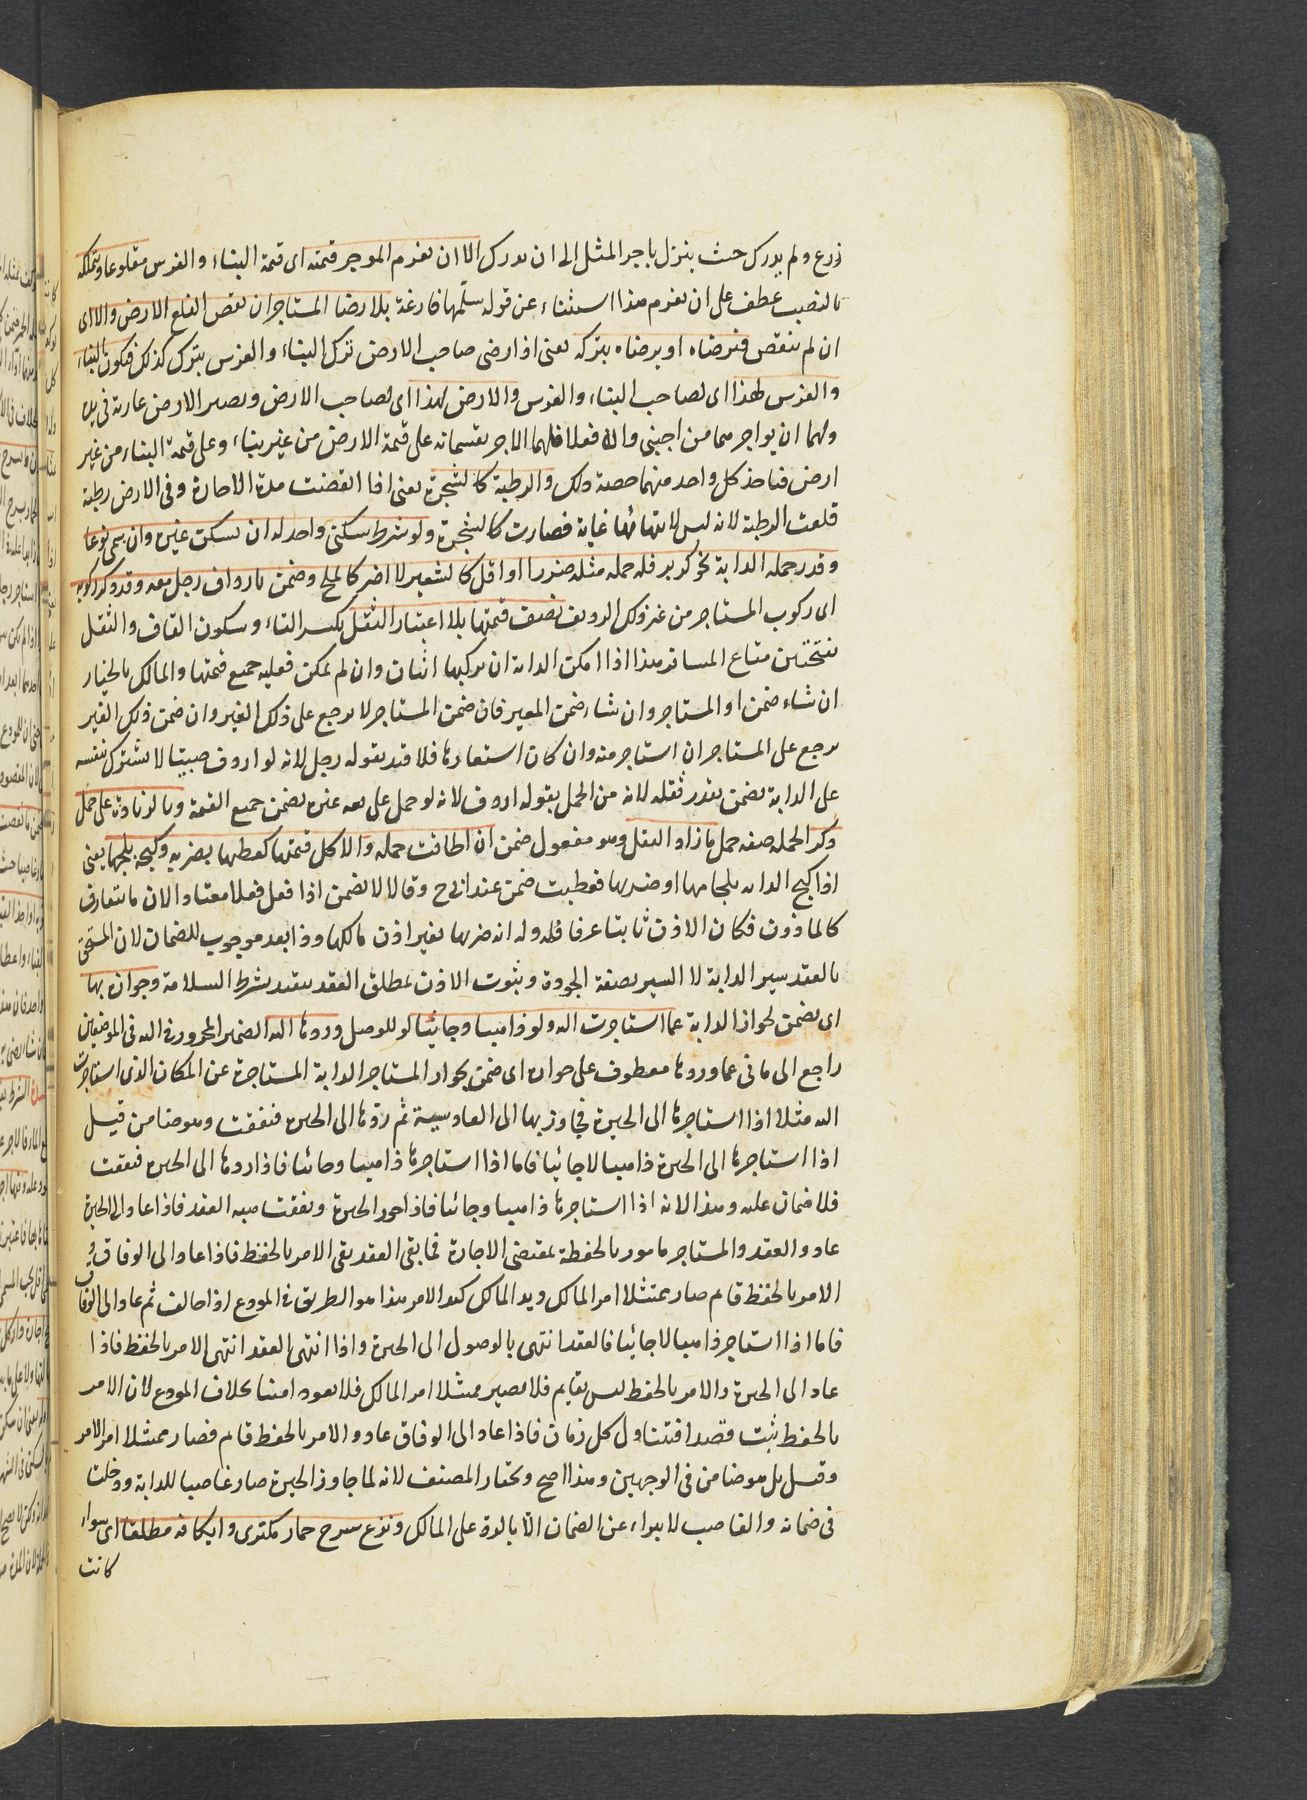 زرع ولم يدرك حيث يترك باجر المثل الى ان يدرك الا ان يغرم الموجر قيمته اى قيمة البناء والغرس مقلوعا ويتملكه
بالنصب عطف على ان يغرم هذا استثناء عن قوله سلّمها فارغة بلا رضا المستاجر ان نقص القلع الارض والا اى
ان لم ينقص فبرضاه او يرضاه بتركه يعنى اذا رضى صاحب الارض ترك البناء والغرس يترك كذلك فيكون البناء
والغرس لهذا اى لصاحب البناء والغرس والارض لهذا اى لصاحب الارض ويصير الارض عارية فى يده
ولهما ان يواجرهما من اجنبى والا فعلا فلهما الاجر يقسمانه على قيمة الارض من غير بناء وعلى قيمة البناء من غير
ارض فياخذ كل واحد منهما حصة ذلك والرطبة كالشجرة يعنى اذا انقضت مدة الاجارة وفى الارض رطبة
قلعت الرطبة لانه ليس لانتهائها غاية فصارت كالشجرة ولو شرط سكنى واحد له ان يسكن غيره وان سمى نوعا
وقدر حمله الدابة نحو كر بر فله حمله مثله ضررا او اقل كالشعير لا اضر كالملح وضمن بارداف رجل معه وقد ذكر ركوبه
اى ركوب المستاجر من غير ذلك الرديف نصف قيمتها بلا اعتبار الثقل بكسر الثاء وسكون القاف والثقل
بفتحتين متاع المسافر هذا اذا امكن الدابة ان يركبها اثنان وان لم يمكن فعليه جميع قيمتها والمالك بالخيار
ان شاء ضمن او المستاجر وان شاء ضمن المعير فان ضمن المستاجر لا يرجع على ذلك الغير وان ضمن ذلك الغير
يرجع على المستاجر ان استاجر منه وان كان استعارها فلا قيد بقوله رجل لانه لو اردف صبيا لا يشترك بنفسه
على الدابة يضمن بقدر ثقله لانه من الحمل بقوله اردف لانه لو حمل على معه غيره يضمن جميع القيمة وبالزيادة على حمل
ذكر الحمله صفه حمل ما زاد الثقل وهو مفعول ضمن ان اطاقت حمله والا كل قيمتها كعطبها بضربه وكبحه بلجامها يعنى
اذا كبح الدابه بلجامها او ضربها فعطبت ضمن عند ابى ح وقالا لا يضمن اذا فعل فعلا معتادا لان ما يتعارف
كالماذون فكان الاذن ثابتا عرفا فله وله انه ضربها بغير اذن مالكها وذا بعد موجوب للضمان لان المستحق
بالعقد سير الدابة لا السير بصفة الجودة وثبوت الاذن بمطلق العقد يتقيد بشرط السلامة وجوازه بها
اى يضمن لجواز الدابة عما استاجرت اليه ولو ذاهبا وجائيا لو للوصل وردها اليه الضمير المجرور فى اليه فى الموضعين
راجع الى ما فى عما وردها معطوف على جوازه اى ضمن بجواز المستاجر الدابة المستاجرة عن المكان الذى استاجرت
اليه مثلا اذا استاجرها الى الحيرة فجاوز بها الى القادسية ثم ردّها الى الحيرة فنفقت وهو ضامن قيل
اذا استاجرها الى الحيرة ذاهبا لا جائيا فاما اذا استاجرها ذاهبا وجائيا فاذا ردها الى الحيره فنفقت
فلا ضمان عليه وهذا لانه اذا استاجرها ذاهبا وجائيا فاذا جوز الحيرة ونفقت صبه العقد فاذا عاد الى الحيرة
عاد والعقد والمستاجر مامور بالحفظ بمقتضى الاجارة فما بقى العقد بقى الامر بالحفظ فاذا عاد الى الوفاق و
الامر بالحفظ قايم صار ممتثلا امر المالك ويد المالك كيد الامر هذا هو الطريق فى المودع اذا خالف ثم عاد الى الوفاق
فاما اذا استاجر ذاهبا لا جائيا فالعقد انتهى بالوصول الى الحيرة واذا انتهى العقد انتهى الامر بالحفظ فاذا
عاد الى الحيرة والامر بالحفظ ليس بقايم فلا يصير ممتثلا امر المالك فلا يعود امينا بخلاف المودع لان الامر
بالحفظ ثبت قصدا فتناول كل زمان فاذا عاد الى الوفاق عاد والامر بالحفظ قايم فصار ممتثلا امر الامر
وقيل بل هو ضامن فى الوجهين وهذا اصح ومختار المصنف لانه لما جاوز الحيرة صار غاصبا للدابة ودخلت
فى ضمانه والغاصب لا يبراء عن الضمان الا بالردّ على المالك ونزع سرج حمار مكترى وايكافه مطلقا اى سواء
كانت